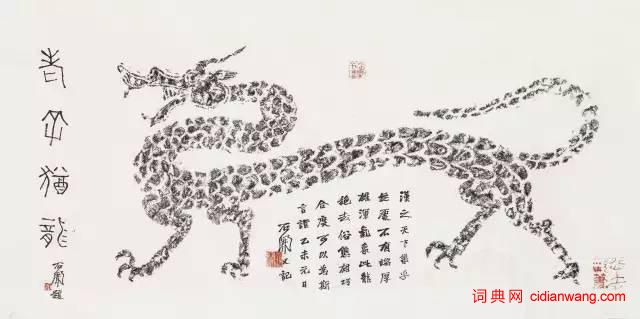 老子猶龍
石開題
漢之天下幾乎
無處不有端厚
雄渾氣象此龍
絕去俗態
合度可以為斯
言證乙未元日
石開又記
词典网 cidianwang.com